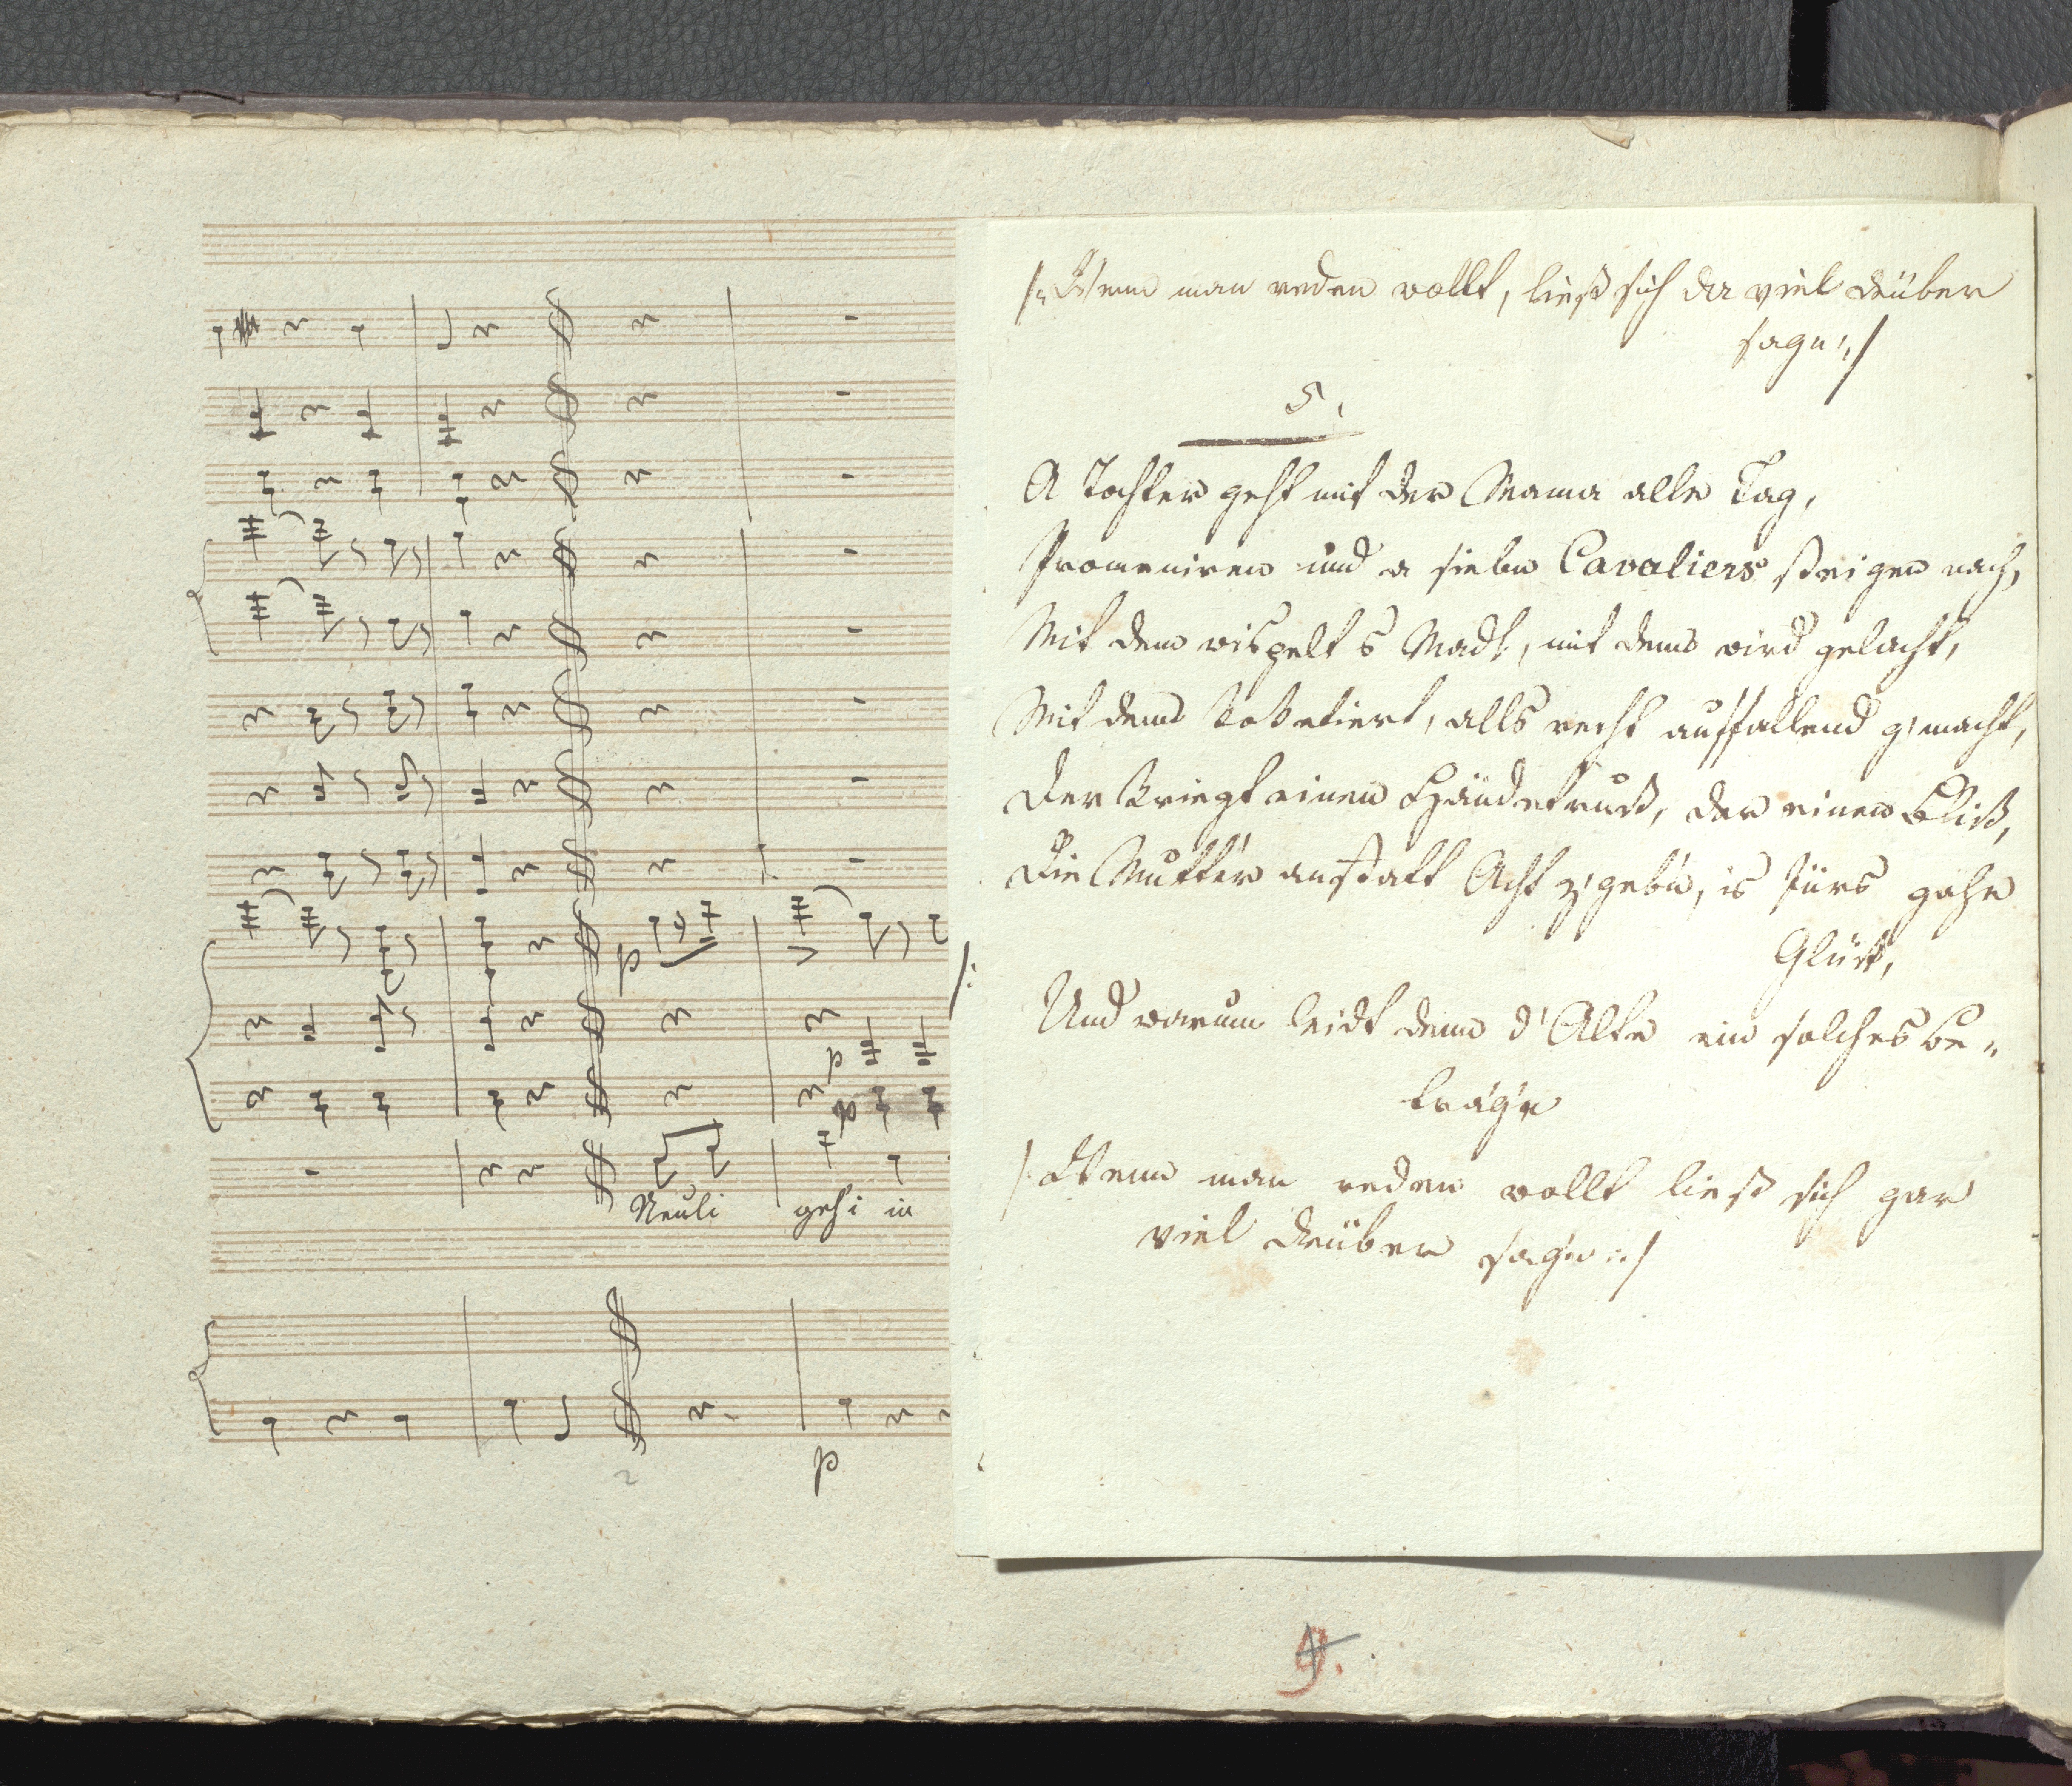 /:Wenn man reden wollt, ließ sich da viel drüber
sagn:/
5.
A Tochter geht mit der Mama alle Tag,
Promeniren und a siebn Cavaliers steigen nach,
Mit dem wispelt s Madl, mit dem wird gelacht,
Mit dem koketiert, alls recht auffallend g'macht,
Der kriegt einen Händetruck, der einen Blick,
Die Mutter anstatt Acht z'geb'n, is fürs
Glück,
/: Und warum leidt denn d'Alte ein solches Be-
träg'n
/: Wenn man reden wollt ließ sich gar
viel drüber sag'n :/
p
p
p
Neuli geh i in
p
2
9.